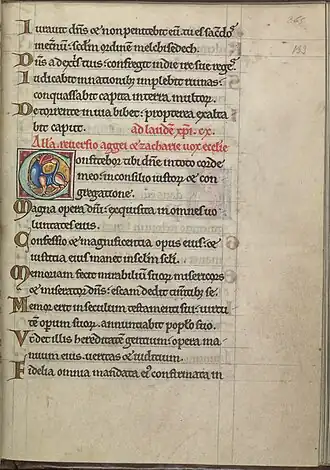 Iurauit dn̄s ⁊ nō penitebit eū: tu es sac̄dos
in et̄nū: sec̄dm ordinem melchisedech.
Dn̄s a dext̄s tuis: confregit in die ire sue reges.
Iudicabit in nationibꝯ implebit ruinas:
conquassabit capita in terra multoꝝ.
De torrente in uia bibet: propterea exalta
bit caput. ad laudē xp̄i. cx.
Alla reuersio aggei ⁊ zacharie uox ecc̄lie
Confitebor tibi dn̄e in toto corde
meo: in consilio iustoꝝ ⁊ con
gregatione.
Magna opera dn̄i: exquisita in omnes uo
luntates eius.
Confessio ⁊ magnificentia opus eius: ⁊
iustitia eius manet in sc̄lm sc̄li.
Memoriam fecit mirabiliū suoꝝ misericors
⁊ miserator dn̄s: escam dedit tim̄tibꝯ se.
Memor erit in seculum testamenti sui: uirtu
tē opum suoꝝ annuntiabit pop̄lo suo.
Vt det illis hereditatē gentium: opera ma
nuum eius ueritas ⁊ iudicium.
Fidelia omnia mandata eiꝯ confirmata in